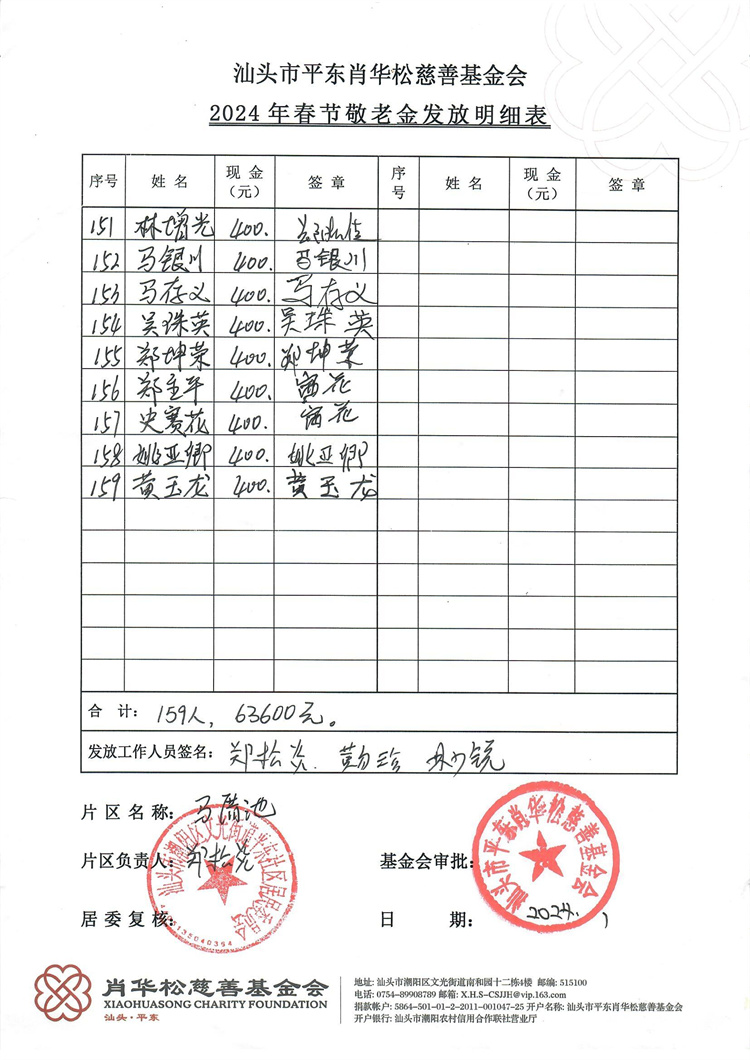 汕头市平东肖华松慈善基金会
2024年春节敬老金发放明细表
序号 姓名 现金（元） 签章 序号 姓名 现金（元） 签章
151 林增光 400.
152 马银川 400. 马银川
153 马存义 400. 马存义
154 吴珠英 400. 吴珠英
155 郑坤荣 400. 郑坤荣
156 郑主平 400. 赛花
157 史赛花 400. 赛花
158 姚亚卿 400. 姚亚卿
159 黄玉龙 400. 黄玉龙
合计： 159人，63600元。
发放工作人员签名： 郑松炎.
片区名称：
片区负责人：
基金会审批：
居委复核：
日期： 2024.
汕头市潮阳区文光街道平东社区居民委员会
汕头市平东肖华松慈善基金会
肖华松慈善基金会
XIAOHUASONG CHARITY FOUNDATION
汕头·平东
地址: 汕头市潮阳区文光街道南和园十二栋4楼 邮编: 515100
电话: 0754-89908789 邮箱: X.H.S-CSJJH@vip.163.com
捐款帐户: 5864-501-01-2-2011-001047-25 开户名称: 汕头市平东肖华松慈善基金会
开户银行: 汕头市潮阳农村信用合作联社营业厅